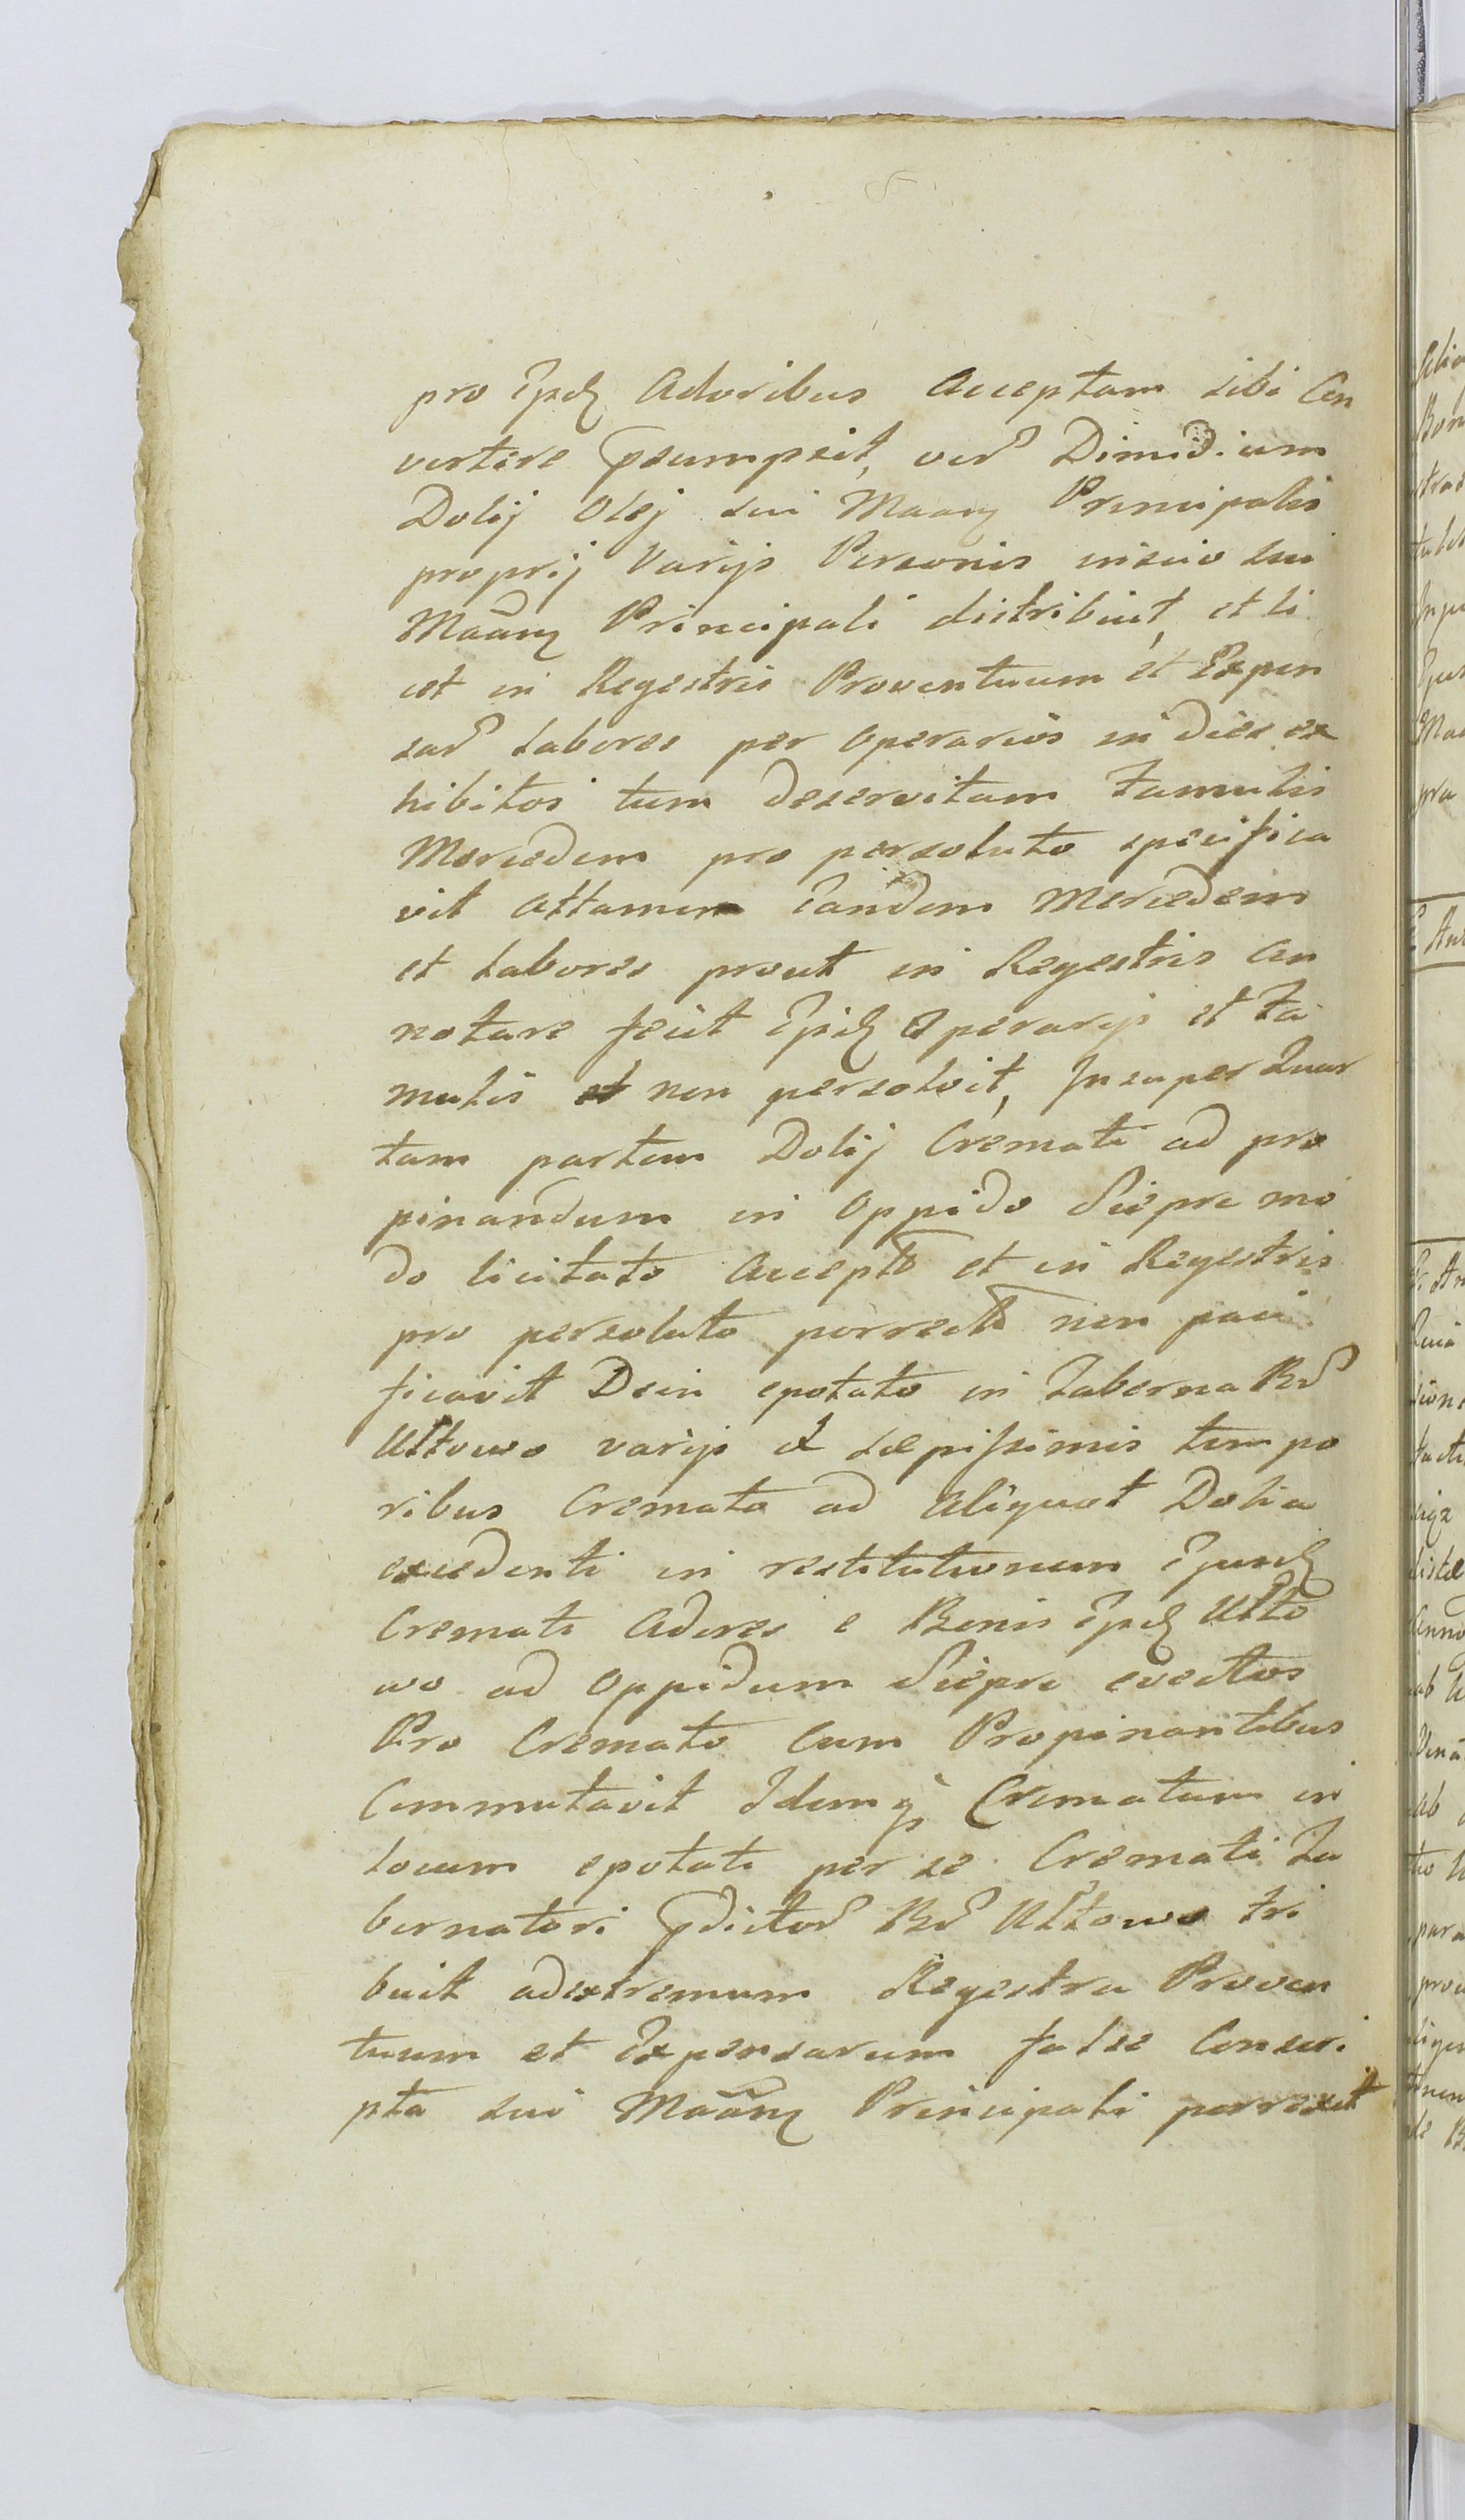 pro ijsd Adoribus Acceptam sibi Con
vertere psumpsit, ver Dimidium
Dolij Olej sui Maanz Principalis
proprij Varijs Personis inscio sui
Maanz Principali distribuit, et li
cet in Regestris Proventuum et Expen
sar Labores per Operarios in dies ex
hibitos tum deservitam Famulis
Mercedem pro persoluto specifica
vit Attamen Eandem Mercedem
et Labores prout in Regestris An
notare fecit ijsd Operarijs et Fa
mulis non persolvit, Insuper Quar
tam partem Dolij Cremati ad pro
pinandum in Oppido Siepra mo
do licitato Accepto et in Regestris
pro persoluto porrecto non paci
ficavit Dein epotato in Taberna Br
Ustowo varijs et sæpissimis tempo
ribus Cremato ad Aliquot Dolia
excedenti in restitutionem Ejusd
Cremati Adores e Bonis ijsd Usto
wo ad Oppidum Siepra evectos
Pro Cremato Cum Propinantibus
Commutavit Idemq Crematum in
locum epotati per se Cremati Ta
bernatori pdictor Br Ustowo tri
buit adextremum Regestra Proven
tuum et Expensarum false Conscri
pta sui Maanz Principali porrexit